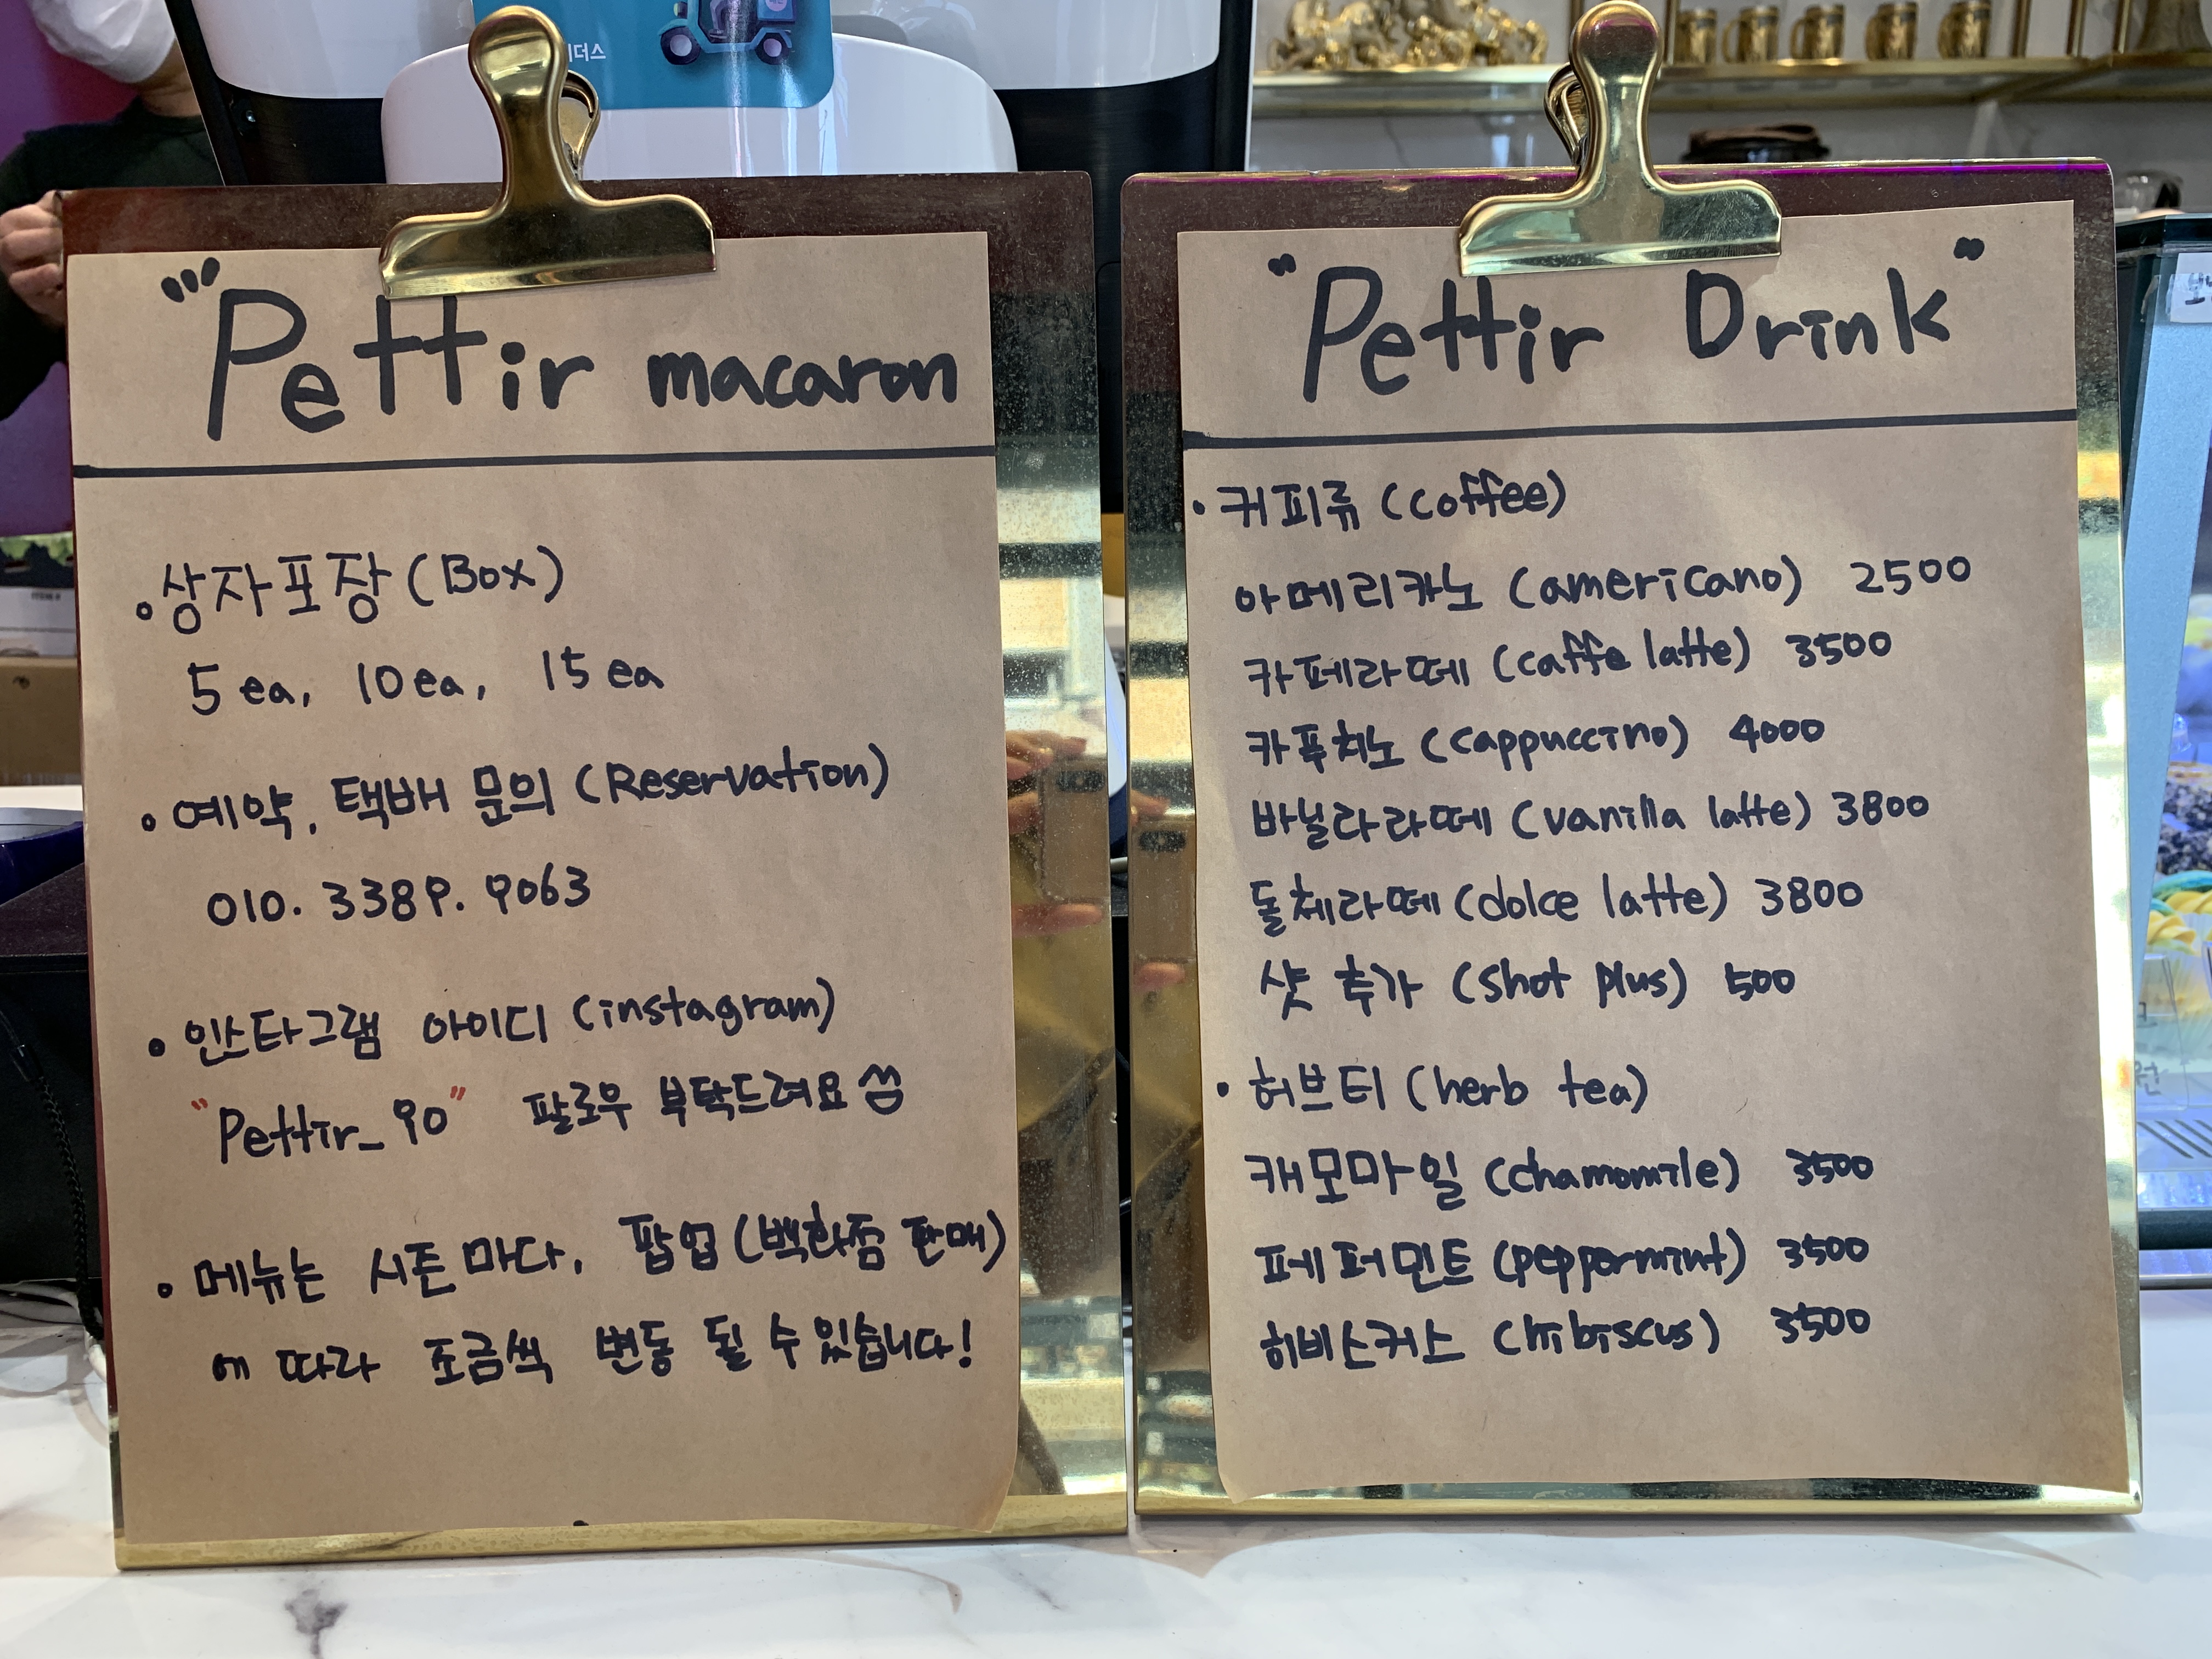 더스
"Pettir macaron
• 상자포장 (Box)
5 ea, 10 ea, 15 ea
• 예약, 택배 문의 (Reservation)
010. 3389. 9063
• 인스타그램 아이디 (instagram)
"Pettir_90" 팔로우 부탁드려요
• 메뉴는 시즌마다, 팝업 (백화점 판매)
에 따라 조금씩 변동 될 수 있습니다!
"Pettir Drink"
• 커피류 (coffee)
아메리카노 (americano) 2500
카페라떼 (caffe latte) 3500
카푸치노 (cappuccino) 4000
바닐라라떼 (vanilla latte) 3800
돌체라떼 (dolce latte) 3800
샷 추가 (shot plus) 500
• 허브티 (herb tea)
캐모마일 (chamomile) 3500
페퍼민트 (peppermint) 3500
히비스커스 (hibiscus) 3500